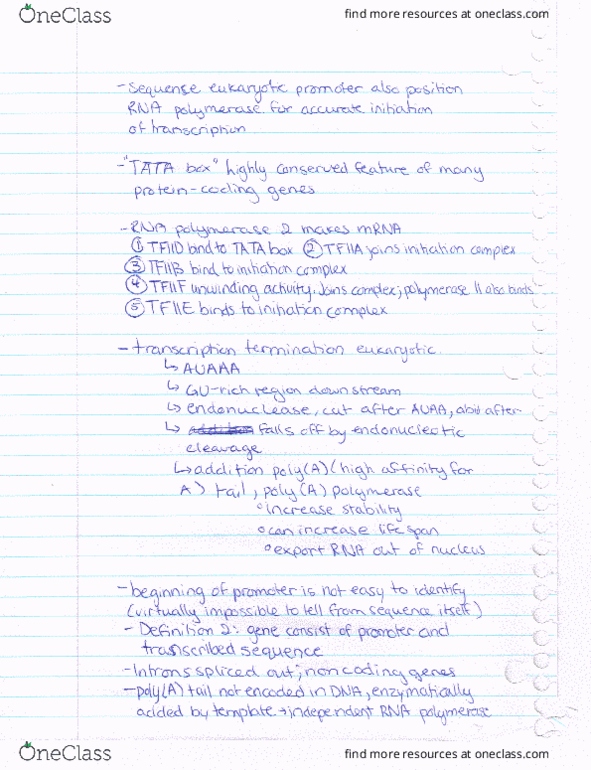 OneClass
find more resources at oneclass.com
- Sequense eukaryotic promoter also position
RNA polymerase for accurate initiation
of transcription
- "TATA box" highly conserved feature of many
protein-coding genes
- RNA polymerase 2 makes mRNA
① TFIID bind to TATA box ② TFIIA joins initiation complex
③ TFIIB bind to initiation complex
④ TFIIF unwinding activity. Joins complex; polymerase II also binds
⑤ TFIIE binds to initiation complex
- transcription termination eukaryotic
↳ AUAAA
↳ GU-rich region downstream
↳ endonuclease, cut after AUAA, abit after
↳ falls off by endonucleotic
cleavage
↳ addition poly(A) (high affinity for
A) tail, poly(A) polymerase
° increase stability
° can increase life span
° export RNA out of nucleus
- beginning of promoter is not easy to identify
(virtually impossible to tell from sequence itself)
- Definition 2: gene consist of promoter and
transcribed sequence
- Introns spliced out; noncoding genes
- poly(A) tail not encoded in DNA, enzymatically
added by template → independent RNA polymerase
OneClass
find more resources at oneclass.com